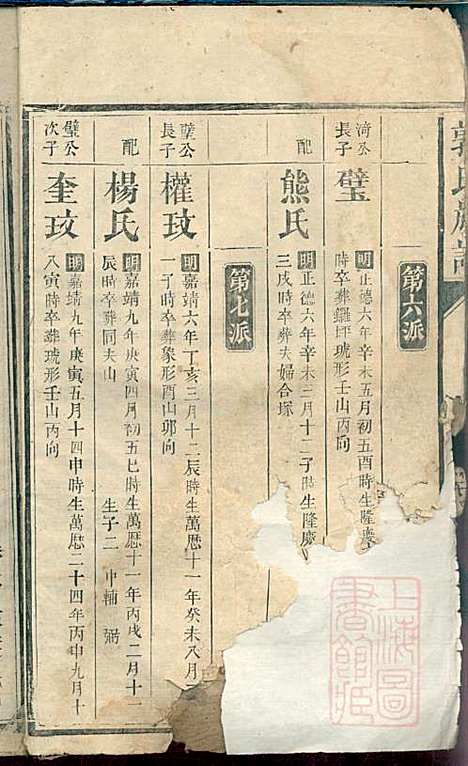 郭氏族譜
第六派
漪公長子
璧
明正德六年辛未五月初五酉時生隆慶
時卒葬鑼坪琥形壬山丙向
配
熊氏
明正德六年辛未三月十二子時生隆慶
三戌時卒葬夫婦合塚
第七派
璧公長子
權玟
明嘉靖六年丁亥三月十二辰時生萬曆十一年癸未八月二
一子時卒葬象形酉山卯向
配
楊氏
明嘉靖九年庚寅四月初五巳時生萬曆十一年丙戌二月十一
辰時卒葬同夫山
生子二
申輔
弼
璧公次子
奎玟
明嘉靖九年庚寅五月十四申時生萬曆二十四年丙申九月十
八寅時卒葬琥形壬山丙向
上海圖書館藏